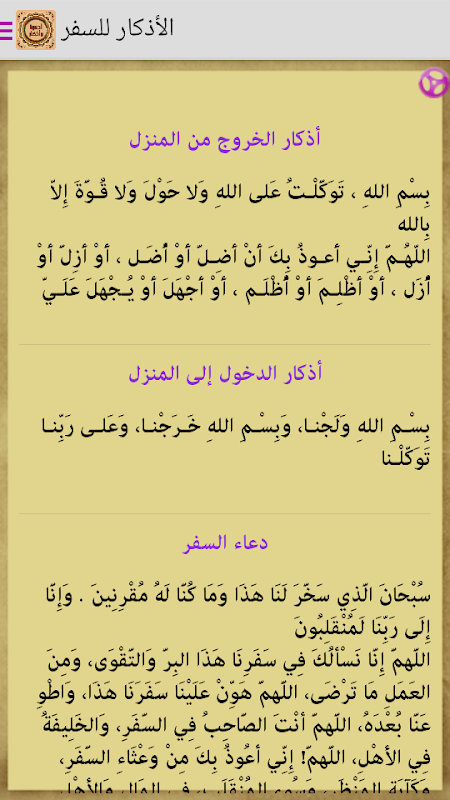 الأذكار للسفر
أذكار الخروج من المنزل
بِسْمِ اللهِ ، تَوَكَّلْـتُ عَلى اللهِ وَلا حَوْلَ وَلا قُـوَّةَ إِلاّ
بِالله
اللّهُـمَّ إِنِّـي أعـوذُ بِكَ أنْ أضِـلَّ أوْ أُضَـل ، أوْ أزِلَّ أوْ
أُزَل ، أوْ أظْلِـمَ أوْ أُظْلَـم ، أوْ أجْهَلَ أوْ يُـجْهَلَ عَلَـيّ
أذكار الدخول إلى المنزل
بِسْـمِ اللهِ وَلَجْنـا، وَبِسْـمِ اللهِ خَـرَجْنـا، وَعَلـى رَبِّنـا
تَوَكّلْـنا
دعاء السفر
سُبْحَانَ الّذِي سَخَّرَ لَنَا هَذَا وَمَا كُنَّا لَهُ مُقْرِنِينَ . وَإِنَّا
إِلَى رَبِّنَا لَمُنْقَلِبُونَ
اللّهمّ إِنّا نَسْألُكَ فِي سَفَرِنَا هَذَا البِرّ وَالتّقْوَى، وَمِنَ
العَمَلِ مَا تَرْضَى، اللّهمّ هَوِّنْ عَلَيْنَا سَفَرَنَا هَذَا، وَاطْوِ
عَنَّا بُعْدَهُ، اللّهمّ أنْتَ الصّاحِبُ فِي السّفَرِ، وَالخَلِيفَةُ
فِي الأهْلِ، اللّهمّ! إِنِّي أعُوذُ بِكَ مِنْ وَعْثَاءِ السّفَرِ،
وَكَآبَةِ المَنْظَرِ، وَسُوءِ المُنْقَلَبِ، فِي المَالِ وَالأهْلِ